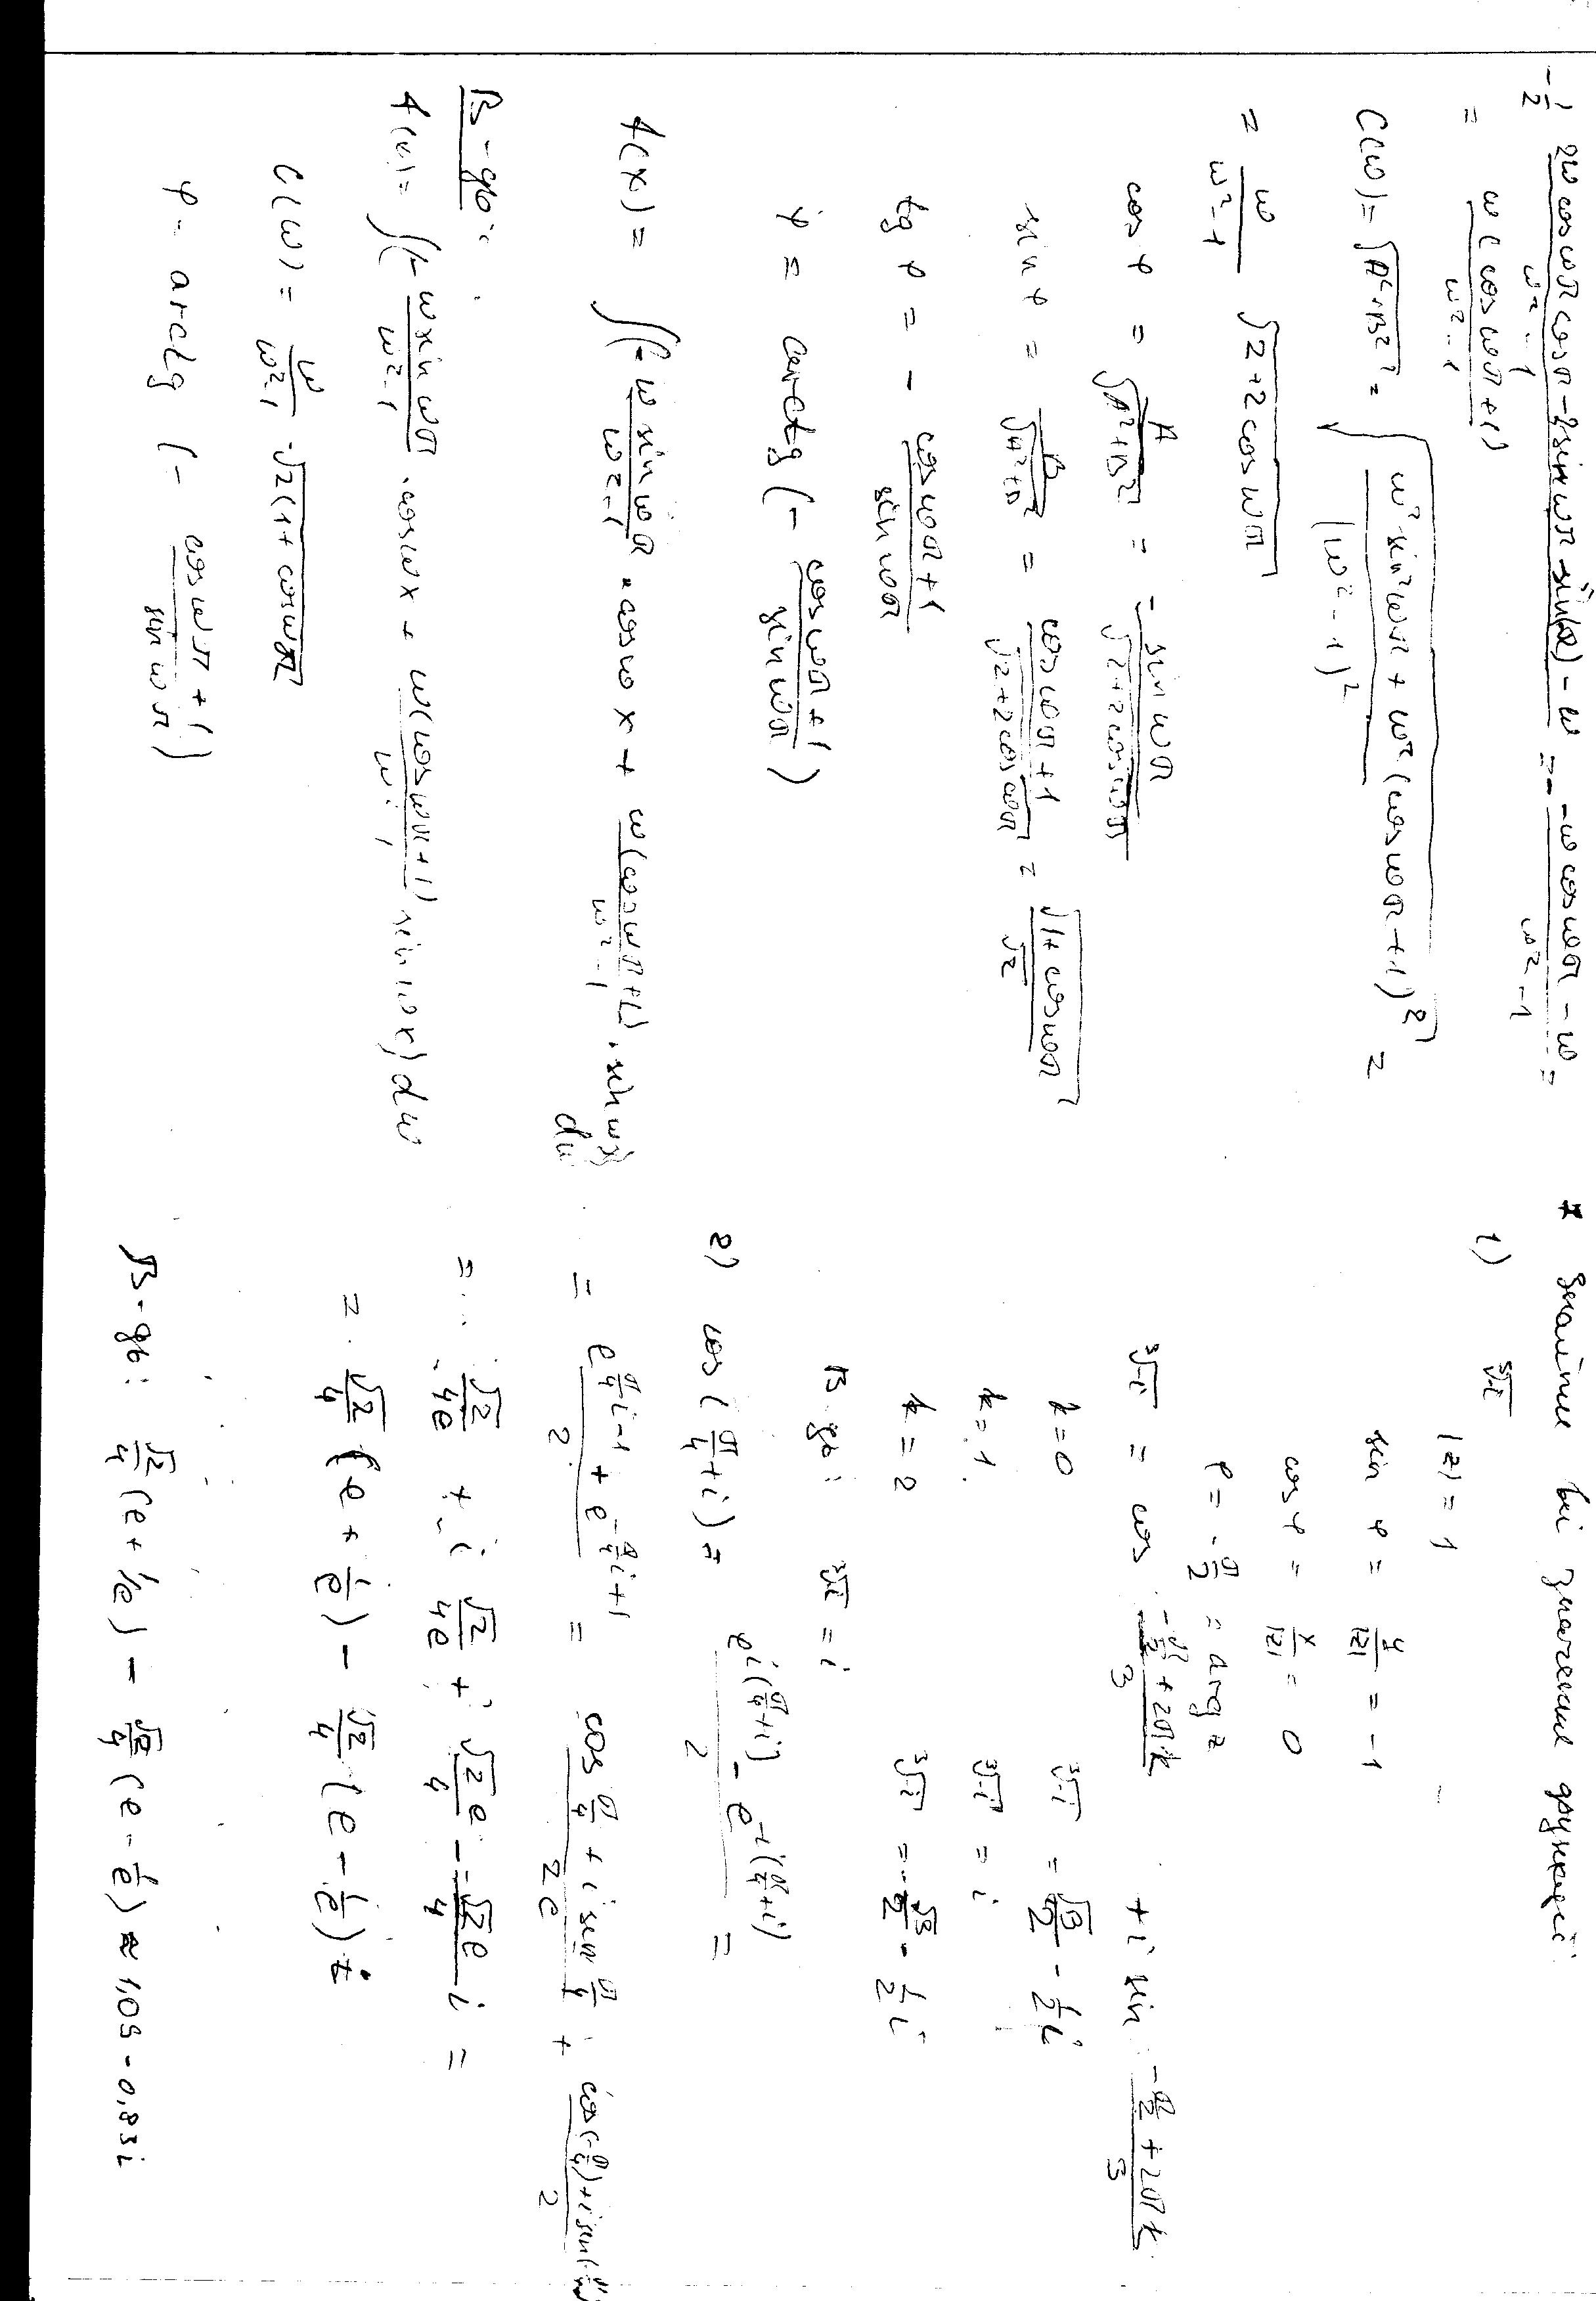 -1/2 · (2ω cos ωπ cos π - 2 sin ωπ · sin(π) - ω)/(ω² - 1) = - (-ω cos ωπ - ω)/(ω² - 1) =
= ω(cos ωπ + 1)/(ω² - 1)
C(ω) = √(A² + B²) = √((ω² sin² ωπ + ω² (cos ωπ + 1)²)/(ω² - 1)²) =
= ω/(ω² - 1) √(2 + 2 cos ωπ)
cos φ = A/√(A² + B²) = - sin ωπ/√(2 + 2 cos ωπ)
sin φ = B/√(A² + B²) = (cos ωπ + 1)/√(2 + 2 cos ωπ) = √(1 + cos ωπ)/√2
tg φ = - (cos ωπ + 1)/(sin ωπ)
φ = arctg (- (cos ωπ + 1)/(sin ωπ))
f(x) = ∫(- ω sin ωπ/(ω² - 1) · cos ω x + ω(cos ωπ + 1)/(ω² - 1) · sin ωx) dω
В-дь:
f(x) = ∫(- ω sin ωπ/(ω² - 1) · cos ωx + ω(cos ωπ + 1)/(ω² - 1) sin ωx) dω
C(ω) = ω/(ω² - 1) · √(2(1 + cos ωπ))
φ - arctg (- (cos ωπ + 1)/(sin ωπ))
* Знайти всі значення функцій
1) ∛-i
|z| = 1
sin φ = y/|z| = -1
cos φ = x/|z| = 0
φ = - π/2 = arg z
∛-i = cos (-π/2 + 2πk)/3 + i sin (-π/2 + 2πk)/3
k=0 ∛-i = √3/2 - 1/2 i
k=1 ∛-i = i
k=2 ∛-i = - √3/2 - 1/2 i
В-дь: ∛-i = i
2) cos(π/4 + i) = (e^(i(π/4+i)) - e^(-i(π/4+i)))/2 =
= (e^(π/4 i-1) + e^(-π/4 i+1))/2 = (cos π/4 + i sin π/4)/2e + (cos(-π/4) + i sin(-π/4))/2
= √2/4e + i √2/4e + √2e/4 - √2e/4 i =
= √2/4 (e + 1/e) - √2/4 (e - 1/e) i
В-дь: √2/4 (e + 1/e) - √2/4 (e - 1/e) ≈ 1,09 - 0,83i